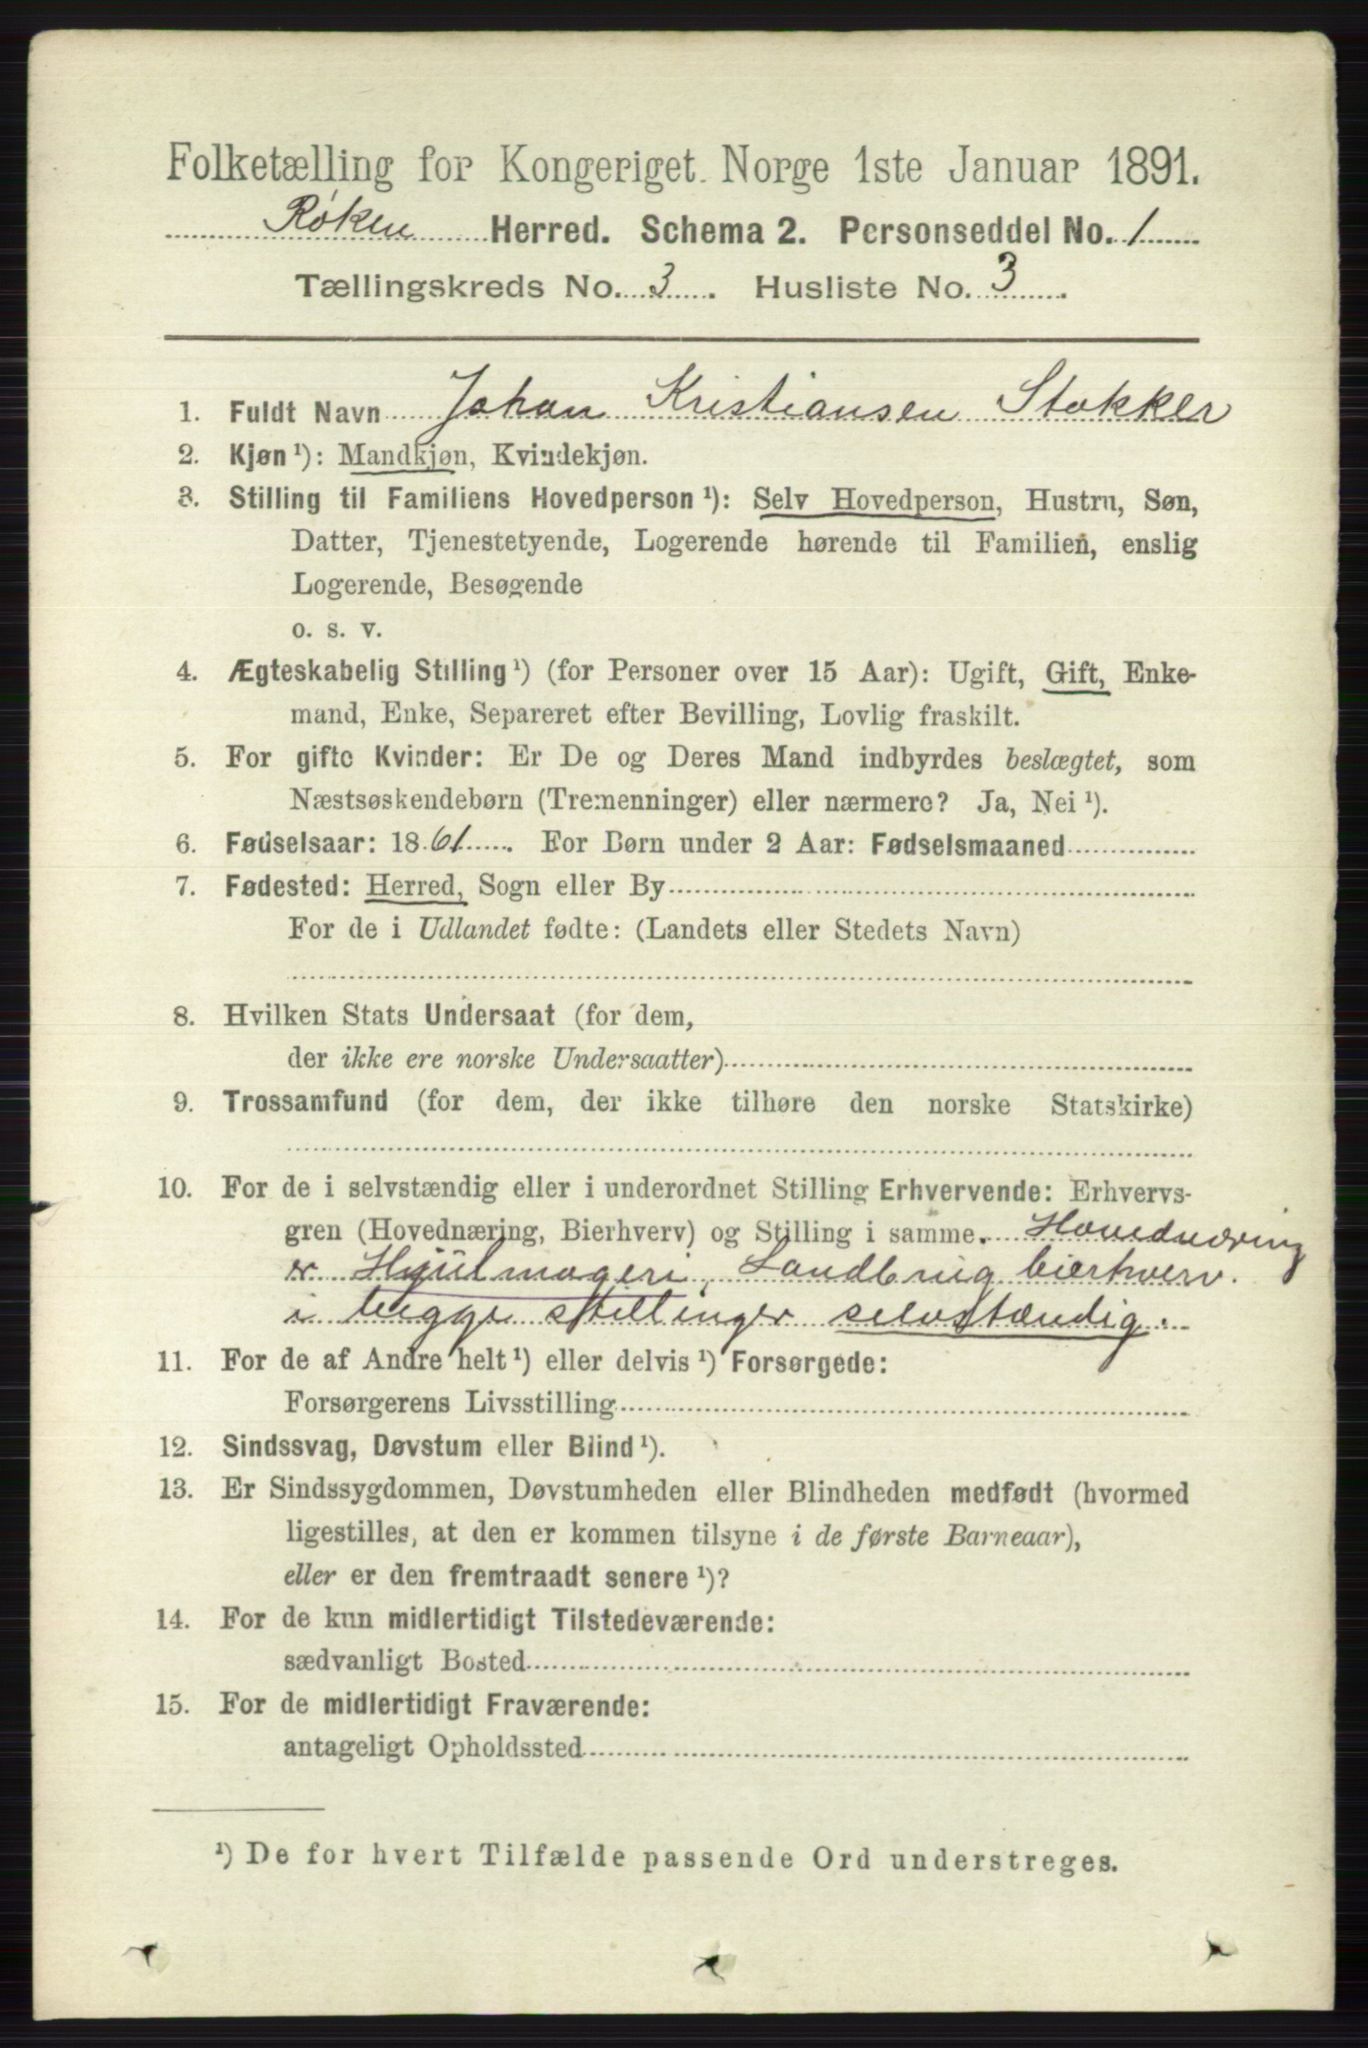 Folketælling for Kongeriget Norge 1ste Januar 1891.
Røken Herred. Schema 2. Personseddel No. 1
Tællingskreds No. 3. Husliste No. 3.
1. Fuldt Navn Johan Kristiansen Stokker
2. Kjøn ¹): Mandkjøn, Kvindekjøn.
3. Stilling til Familiens Hovedperson ¹): Selv Hovedperson, Hustru, Søn,
Datter, Tjenestetyende, Logerende hørende til Familien, enslig
Logerende, Besøgende
o. s. v.
4. Ægteskabelig Stilling ¹) (for Personer over 15 Aar): Ugift, Gift, Enke-
mand, Enke, Separeret efter Bevilling, Lovlig fraskilt.
5. For gifte Kvinder: Er De og Deres Mand indbyrdes beslægtet, som
Næstsøskendebørn (Tremenninger) eller nærmere? Ja, Nei ¹).
6. Fødselsaar: 1861. For Børn under 2 Aar: Fødselsmaaned
7. Fødested: Herred, Sogn eller By
For de i Udlandet fødte: (Landets eller Stedets Navn)
8. Hvilken Stats Undersaat (for dem,
der ikke ere norske Undersaatter)
9. Trossamfund (for dem, der ikke tilhøre den norske Statskirke)
10. For de i selvstændig eller i underordnet Stilling Erhvervende: Erhvervs-
gren (Hovednæring, Bierhverv) og Stilling i samme. Hovednæring
er Hjulmageri, Landbrug bierhverv.
i begge stillinger selvstændig.
11. For de af Andre helt ¹) eller delvis ¹) Forsørgede:
Forsørgerens Livsstilling
12. Sindssvag, Døvstum eller Blind ¹).
13. Er Sindssygdommen, Døvstumheden eller Blindheden medfødt (hvormed
ligestilles, at den er kommen tilsyne i de første Barneaar),
eller er den fremtraadt senere ¹)?
14. For de kun midlertidigt Tilstedeværende:
sædvanligt Bosted
15. For de midlertidigt Fraværende:
antageligt Opholdssted
¹) De for hvert Tilfælde passende Ord understreges.